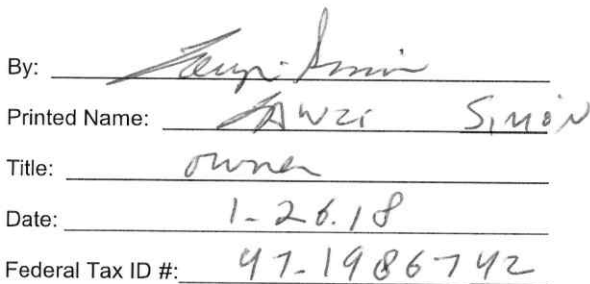 By: Fawzi Simon
Printed Name: FAWZi SiMoN
Title: owner
Date: 1-26.18
Federal Tax ID #: 47-1986742